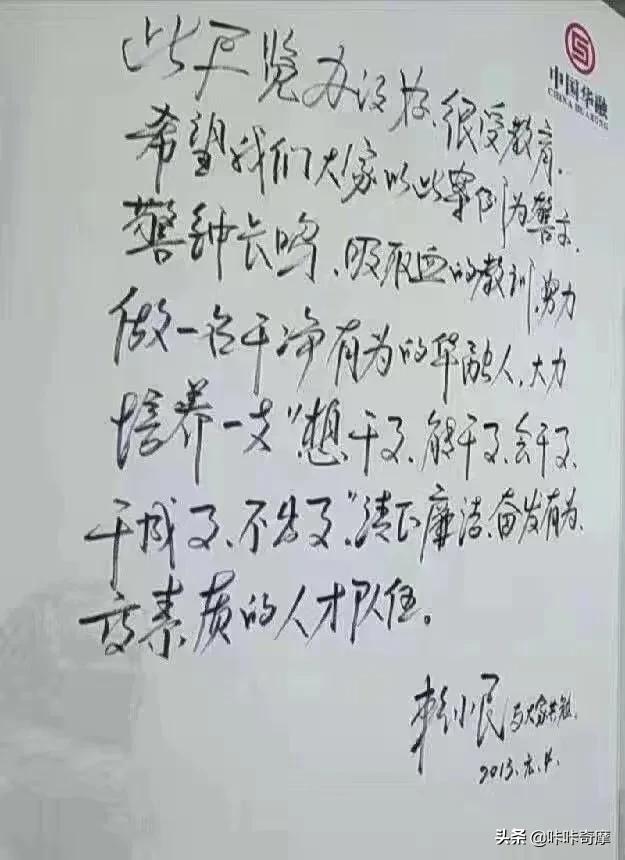 中国华融
CHINA HUARONG
此展览办得好、很受教育、
希望我们大家以此案例为警示、
警钟长鸣、吸取血的教训、努力
做一名干净有为的华融人、大力
培养一支“想干事、能干事、会干事、
干成事、不出事”、清正廉洁、奋发有为、
高素质的人才队伍。
赖小民 与大家共勉.
2013.
头条 @咔咔奇摩